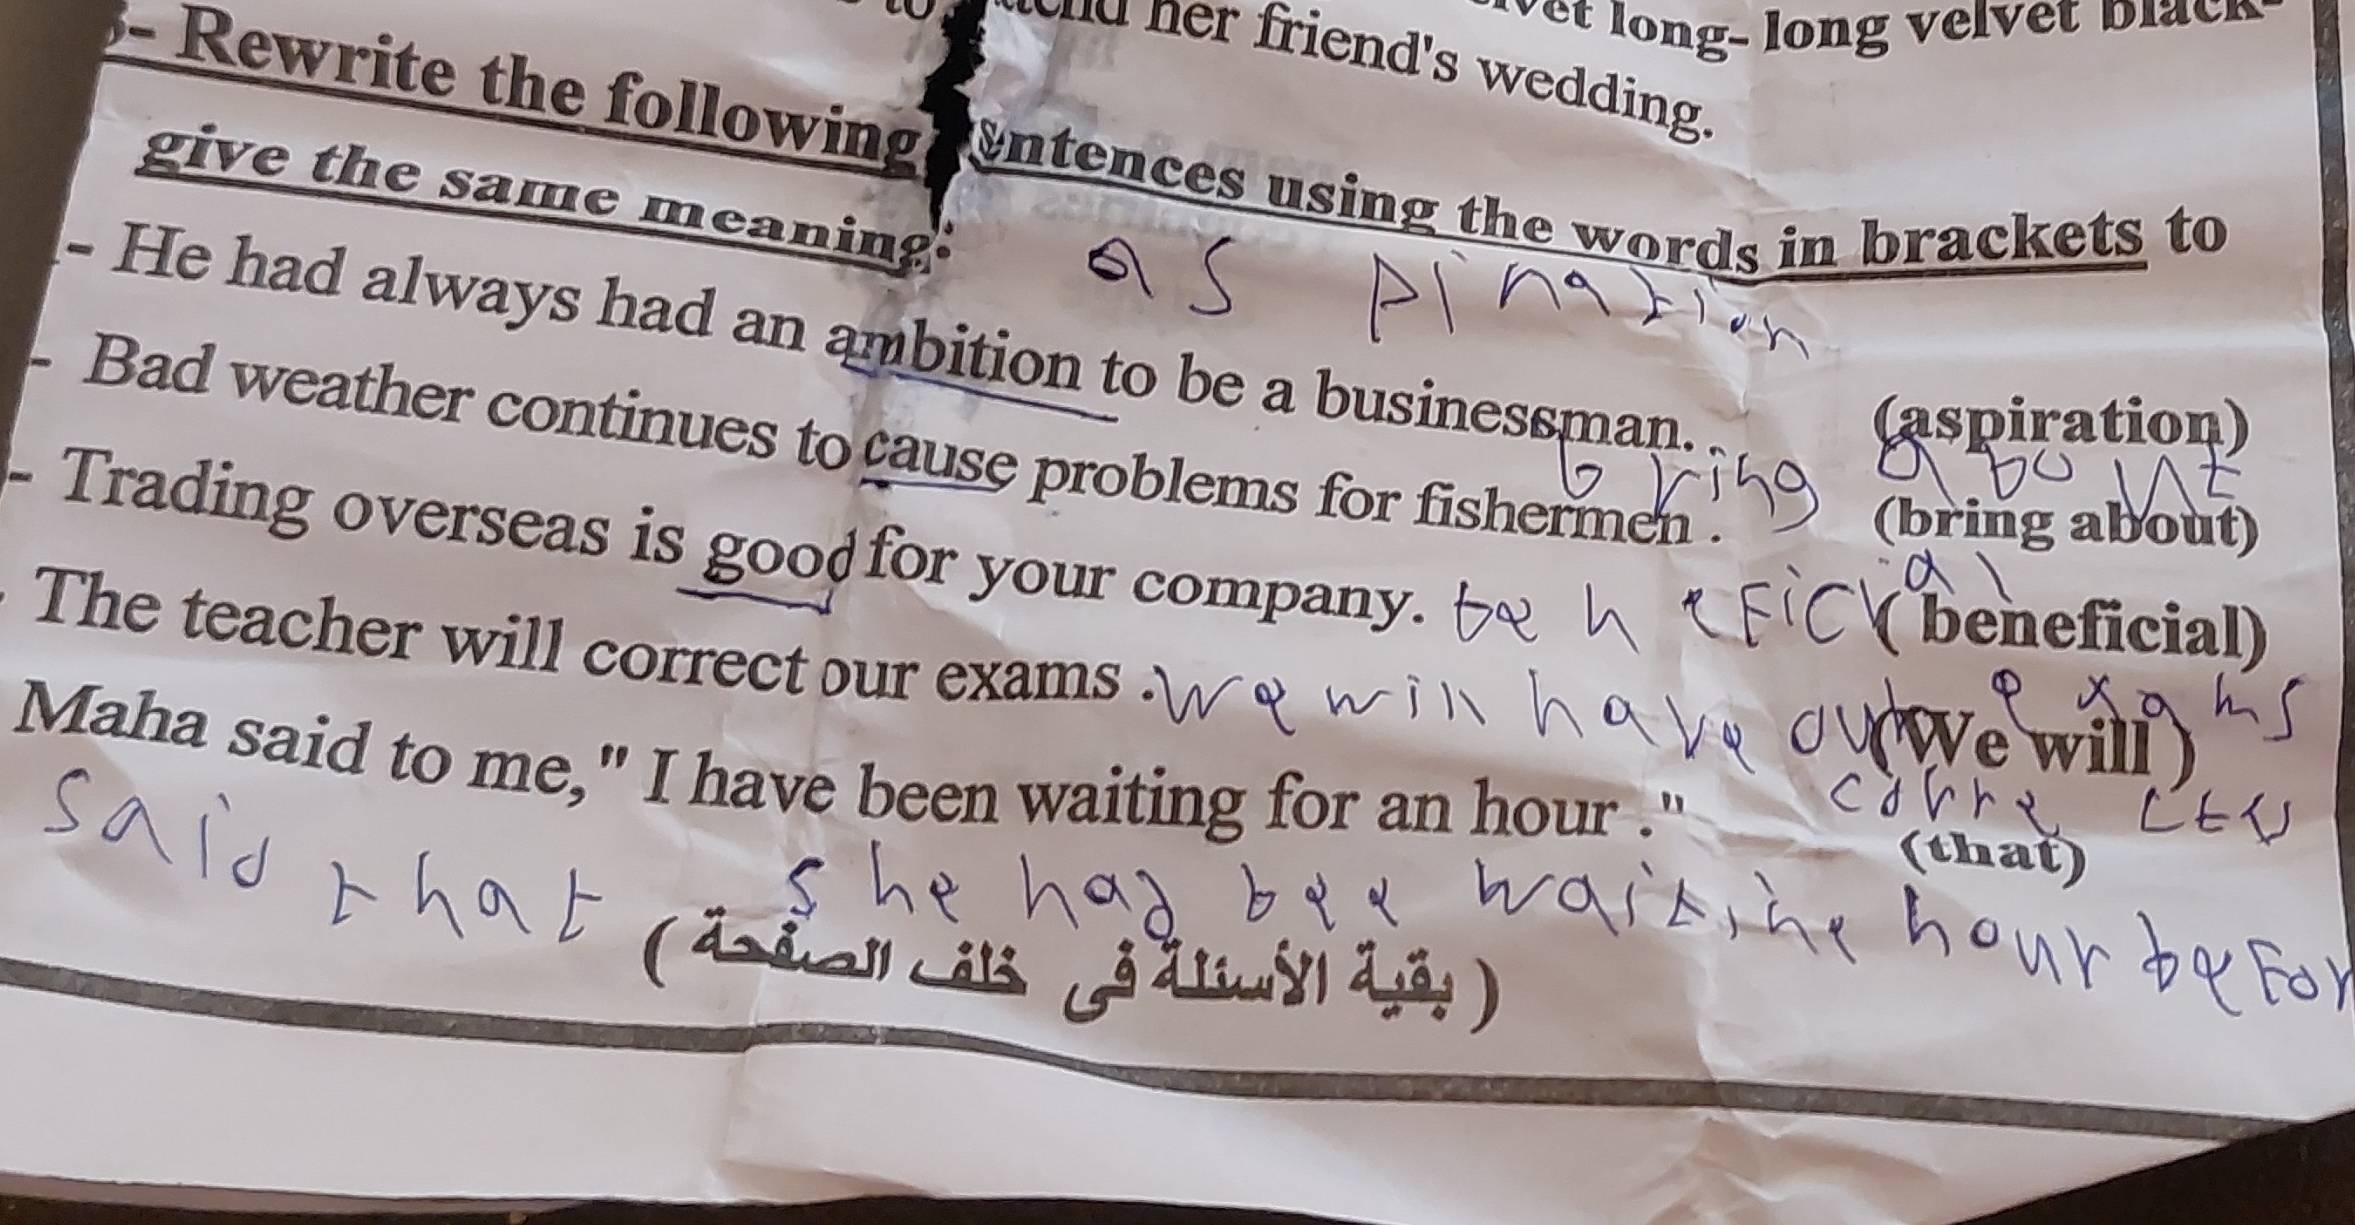 her friend's wedding.
long- long velvet black-
- Rewrite the following sentences using the words in brackets to
give the same meaning:
as pination
- He had always had an ambition to be a businessman. (aspiration)
bring about
- Bad weather continues to cause problems for fishermen . (bring about)
- Trading overseas is good for your company. beneficial (beneficial)
The teacher will correct our exams . We will have our exams (We will)
corrected
Maha said to me," I have been waiting for an hour ." (that)
said that she had bee waitine hour befor
( بقية الأسئلة في خلف الصفحة )